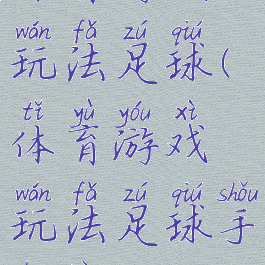 wán fǎ zú qiú
玩法足球(
tǐ yù yóu xì
体育游戏
wán fǎ zú qiú shǒu
玩法足球手